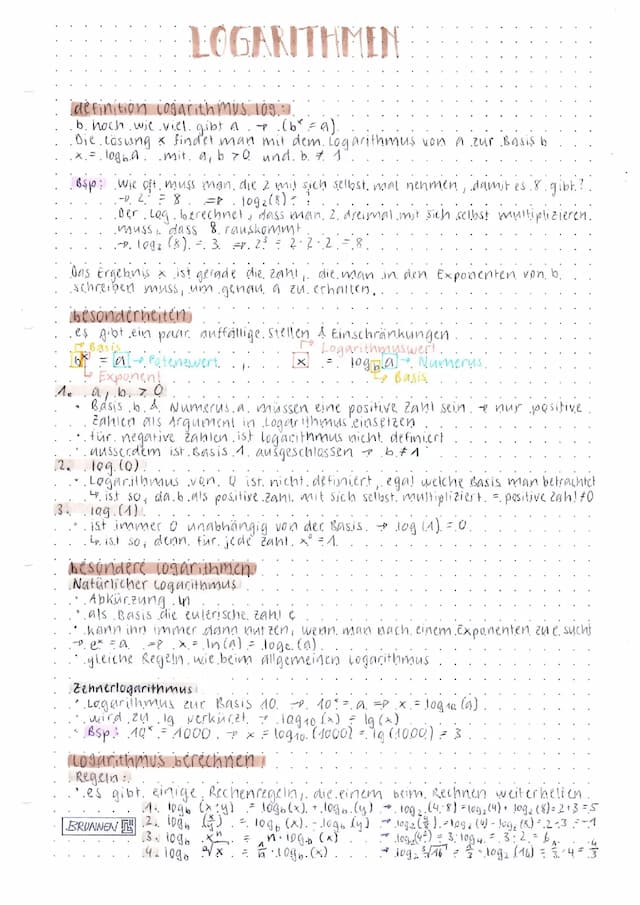 LOGARITHMEN
definition logarithmus log.:
b hoch wie viel gibt a → (bˣ = a)
Die Lösung x findet man mit dem Logarithmus von a zur Basis b
x = log_b a mit a, b > 0 und b ≠ 1
Bsp: Wie oft muss man die 2 mit sich selbst mal nehmen, damit es 8 gibt?
→ 2^? = 8 ⇒ log₂(8) = ?
Der Log berechnet, dass man 2 dreimal mit sich selbst multiplizieren
muss, dass 8 rauskommt
→ log₂(8) = 3 ⇒ 2³ = 2 · 2 · 2 = 8
Das Ergebnis x ist gerade die Zahl, die man in den Exponenten von b
schreiben muss, um genau a zu erhalten.
besonderheiten
es gibt ein paar auffällige Stellen & Einschränkungen
Basis Logarithmuswert
bˣ = a → Potenzwert , x = log_b a → Numerus
Exponent Basis
1. a, b > 0
• Basis b & Numerus a müssen eine positive Zahl sein → nur positive
Zahlen als Argument in Logarithmus einsetzen
• für negative Zahlen ist Logarithmus nicht definiert
• ausserdem ist Basis 1 ausgeschlossen → b ≠ 1
2. log (0)
• Logarithmus von 0 ist nicht definiert, egal welche Basis man betrachtet
↳ ist so, da b als positive Zahl mit sich selbst multipliziert = positive Zahl ≠ 0
3. log (1)
• ist immer 0 unabhängig von der Basis → log (1) = 0
↳ ist so, denn für jede Zahl x⁰ = 1
besondere logarithmen
Natürlicher Logarithmus
• Abkürzung ln
• als Basis die eulerische Zahl e
• kann ihn immer dann nutzen, wenn man nach einem Exponenten zu e sucht
→ eˣ = a ⇒ x = ln(a) = log_e(a)
• gleiche Regeln wie beim allgemeinen Logarithmus
Zehnerlogarithmus
• Logarithmus zur Basis 10 → 10ˣ = a ⇒ x = log₁₀(a)
• wird zu lg verkürzt → log₁₀(x) = lg(x)
• Bsp: 10ˣ = 1000 → x = log₁₀(1000) = lg(1000) = 3
logarithmus berechnen
Regeln:
• es gibt einige Rechenregeln, die einem beim Rechnen weiterhelfen
1. log_b (x·y) = log_b(x) + log_b(y) → log₂(4·8) = log₂(4) + log₂(8) = 2+3 = 5
2. log_b (x/y) = log_b(x) - log_b(y) → log₂(4/8) = log₂(4) - log₂(8) = 2-3 = -1
3. log_b xⁿ = n · log_b (x)
4. log_b ⁿ√x = 1/n · log_b (x)
BRUNNEN